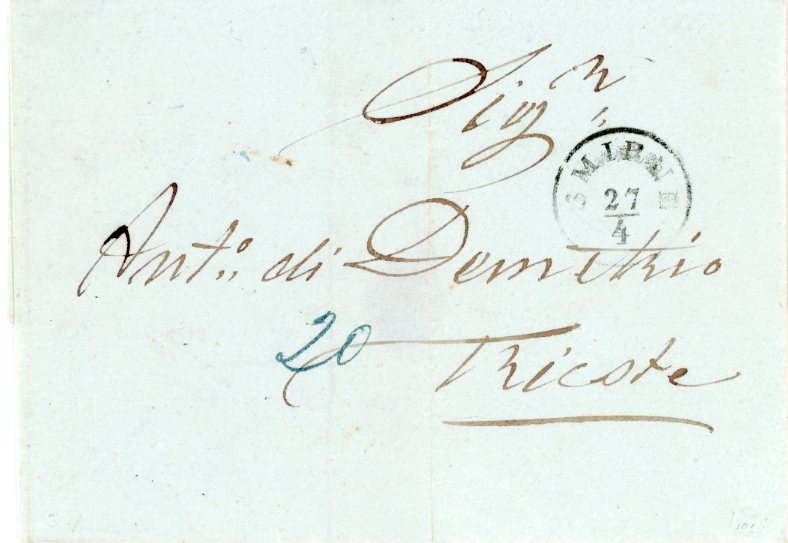 Sigr.
SMIRNE
27
4
Anto: di Demetrio
20
Trieste